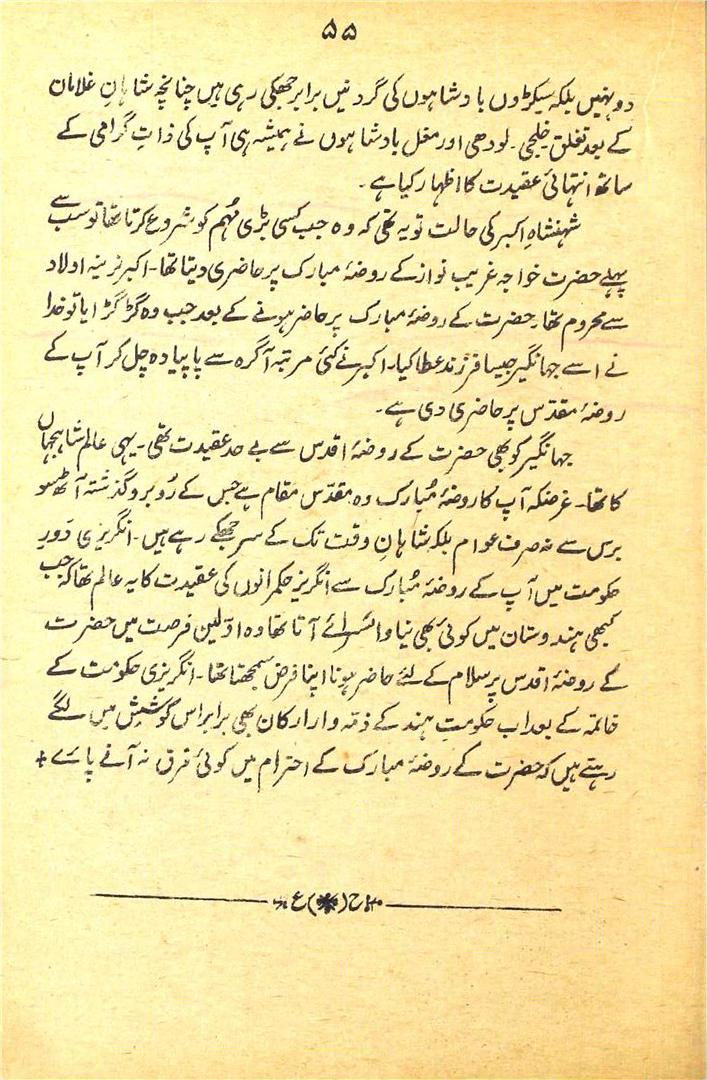 ۵۵
دو نہیں بلکہ سیکڑوں بادشاہوں کی گردنیں برابر جھکی رہی ہیں چنانچہ شاہانِ غلامان
کے بعد تغلق خلجی۔ لودھی اور مغل بادشاہوں نے ہمیشہ ہی آپ کی ذاتِ گرامی کے
ساتھ انتہائی عقیدت کا اظہار کیا ہے۔
شہنشاہِ اکبر کی حالت تو یہ تھی کہ وہ جب کسی بڑی مہم کو شروع کرتا تھا تو سب سے
پہلے حضرت خواجہ غریب نواز کے روضۂ مبارک پر حاضری دیتا تھا۔ اکبر نرینہ اولاد
سے محروم تھا۔ حضرت کے روضۂ مبارک پر حاضر ہونے کے بعد جب وہ گڑگڑایا تو خدا
نے اسے جہانگیر جیسا فرزند عطا کیا۔ اکبر نے کئی مرتبہ آگرہ سے پاپیادہ چل کر آپ کے
روضۂ مقدّس پر حاضری دی ہے۔
جہانگیر کو بھی حضرت کے روضۂ اقدس سے بے حد عقیدت تھی۔ یہی عالم شاہجہاں
کا تھا۔ غرضکہ آپ کا روضۂ مُبارک وہ مقدّس مقام ہے جس کے رُوبرو گذشتہ آٹھ سو
برس سے نہ صرف عوام بلکہ شاہانِ وقت تک کے سر جھکے رہے ہیں۔ انگریزی دَورِ
حکومت میں آپ کے روضۂ مُبارک سے انگریز حکمرانوں کی عقیدت کا یہ عالم تھا کہ جب
کبھی ہندوستان میں کوئی بھی نیا وائسرائے آتا تھا وہ اوّلین فرصت میں حضرت
کے روضۂ اقدس پر سلام کے لئے حاضر ہونا اپنا فرض سمجھتا تھا۔ انگریزی حکومت کے
خاتمہ کے بعد اب حکومتِ ہند کے ذمّہ وار ارکان بھی برابر اس کوشش میں لگے
رہتے ہیں کہ حضرت کے روضۂ مبارک کے احترام میں کوئی فرق نہ آنے پائے +